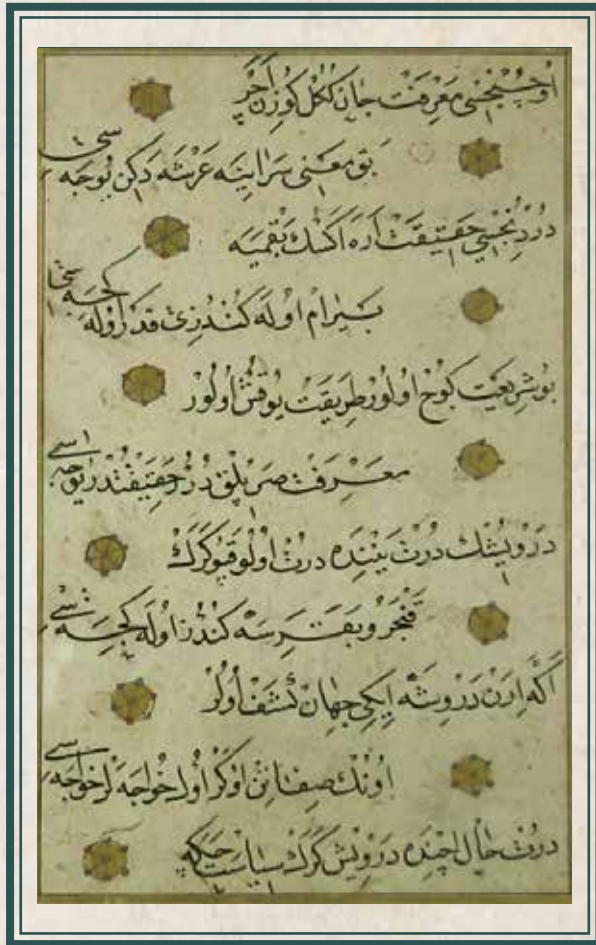 اُوچُنْجِسِي مَعْرِفَتْ جَانْ كُكُلْ كُوزِنْ اَچَرْ
بَقْ مَعْنِى سَرَايِنَه عَرْشَه دَكِنْ يُوجَه سِى
دُرْدِنْجِسِي حَقِيقَتْ اَرَه اَكْسِكْ بَقْمَيَه
بَيْرَامْ اوُلَه كُنْدُزِى قَدْرْ اوُلَه كِجَه سِى
بُو شَرِيعَتْ كُوجْ اوُلُورْ طَرِيقَتْ يُوقُشْ اوُلُورْ
مَعْرِفَتْ صَرْپْلِقْ دُرُرْ حَقِيقَتْدُرْ يُوجَه سِى
دَرْوِيشِكْ دُرْتْ يَنِنْدَه دُرْتْ اوُلُو قَپُو كَرَكْ
قَنْجَرُو بَقَرِسَه كُنْدُزْ اوُلَه كِجَه سِى
اَكَه اِرَنْ دَرْوِشَه اِيكِي جِهَانْ كَشَفْ اوُلُرْ
اوُنُكْ صِفَاتِنْ اوُكَرْ اوُلْ خُواجَه لَرْ خُواجَه سِى
دُرْتْ حَالْ اِچِنْدَه دَرْوِيشْ كَرَكْ سِيَاسَتْ چَكَه